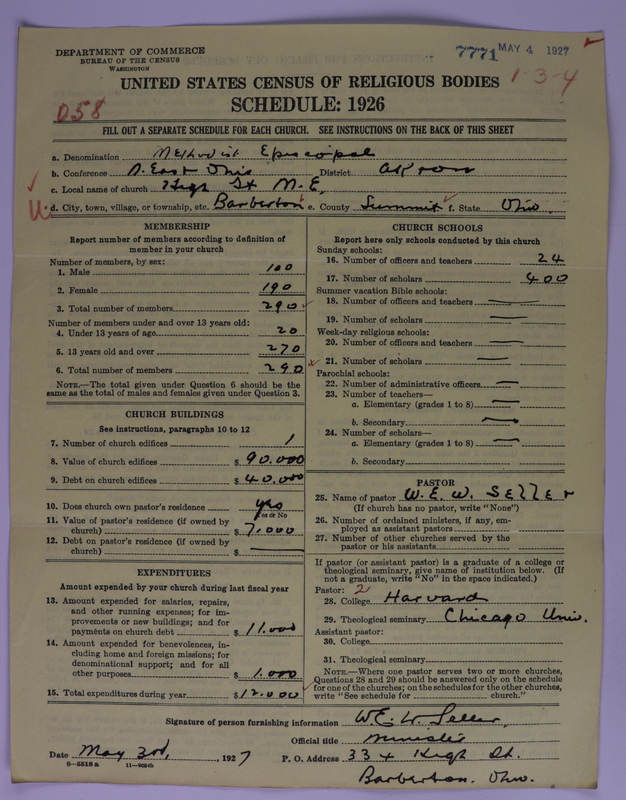 DEPARTMENT OF COMMERCE
BUREAU OF THE CENSUS
WASHINGTON
7771 MAY 4 1927
1-3-4
UNITED STATES CENSUS OF RELIGIOUS BODIES
SCHEDULE: 1926
058
FILL OUT A SEPARATE SCHEDULE FOR EACH CHURCH. SEE INSTRUCTIONS ON THE BACK OF THIS SHEET
a. Denomination Methodist Episcopal
b. Conference N. East Ohio District Akron
c. Local name of church High St M.E.
d. City, town, village, or township, etc. Barberton e. County Summit f. State Ohio
MEMBERSHIP
Report number of members according to definition of
member in your church
Number of members, by sex:
1. Male 100
2. Female 190
3. Total number of members 290
Number of members under and over 13 years old:
4. Under 13 years of age 20
5. 13 years old and over 270
6. Total number of members 290
NOTE.—The total given under Question 6 should be the
same as the total of males and females given under Question 3.
CHURCH BUILDINGS
See instructions, paragraphs 10 to 12
7. Number of church edifices 1
8. Value of church edifices $ 90.000
9. Debt on church edifices $ 40.000
10. Does church own pastor's residence yes
Yes or No
11. Value of pastor's residence (if owned by
church) $ 7.000
12. Debt on pastor's residence (if owned by
church) $
EXPENDITURES
Amount expended by your church during last fiscal year
13. Amount expended for salaries, repairs,
and other running expenses; for im-
provements or new buildings; and for
payments on church debt $ 11.000
14. Amount expended for benevolences, in-
cluding home and foreign missions; for
denominational support; and for all
other purposes $ 1.000
15. Total expenditures during year $ 12.000
CHURCH SCHOOLS
Report here only schools conducted by this church
Sunday schools:
16. Number of officers and teachers 24
17. Number of scholars 400
Summer vacation Bible schools:
18. Number of officers and teachers
19. Number of scholars
Week-day religious schools:
20. Number of officers and teachers
21. Number of scholars
Parochial schools:
22. Number of administrative officers
23. Number of teachers—
a. Elementary (grades 1 to 8)
b. Secondary
24. Number of scholars—
a. Elementary (grades 1 to 8)
b. Secondary
PASTOR
25. Name of pastor W. E. W. Seller
(If church has no pastor, write "None")
26. Number of ordained ministers, if any, em-
ployed as assistant pastors
27. Number of other churches served by the
pastor or his assistants
If pastor (or assistant pastor) is a graduate of a college or
theological seminary, give name of institution below. (If
not a graduate, write "No" in the space indicated.)
Pastor: 2
28. College Harvard
29. Theological seminary Chicago Univ.
Assistant pastor:
30. College
31. Theological seminary
NOTE.—Where one pastor serves two or more churches,
Questions 28 and 29 should be answered only on the schedule
for one of the churches; on the schedules for the other churches,
write "See schedule for church."
Signature of person furnishing information W.E.W. Seller,
Official title Minister
Date May 3rd, 1927 P. O. Address 334 High St.
8—5518a 11—9024b
Barberton. Ohio.